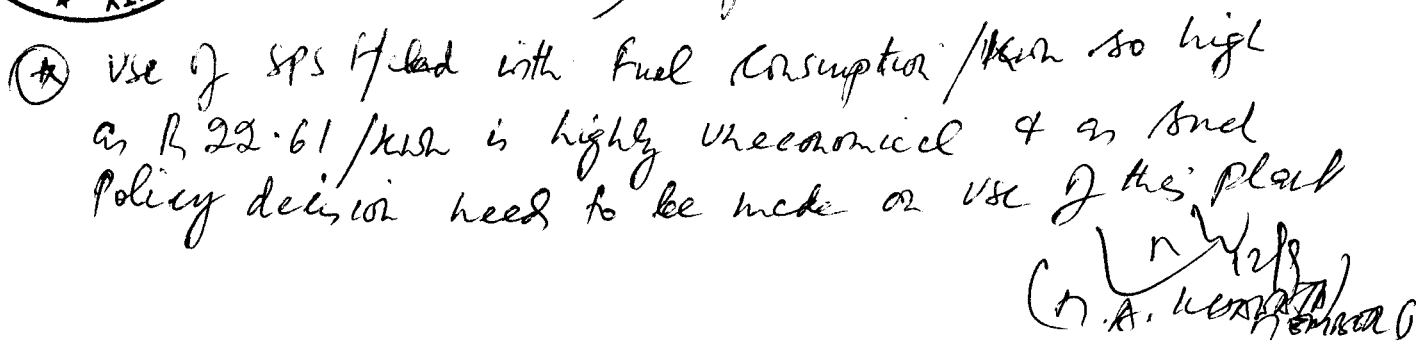 Use of SPS H/lead with Fuel Consumption/kwh so high
as Rs 22.61/kwh is highly uneconomical & as such
Policy decision need to be made on use of this plant
12/9
(N.A.
MEMBER